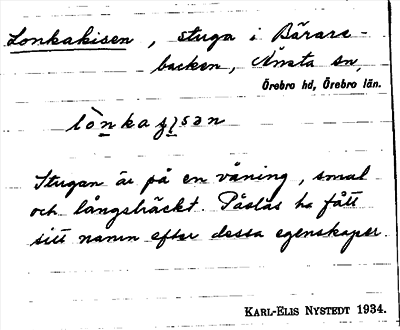 Lonkakisen, stuga i Bärars-
backen, Ånsta sn,
Örebro hd, Örebro län.
Stugan är på en våning, smal
och långsträckt. Påstås ha fått
sitt namn efter dessa egenskaper.
KARL-ELIS NYSTEDT 1934.